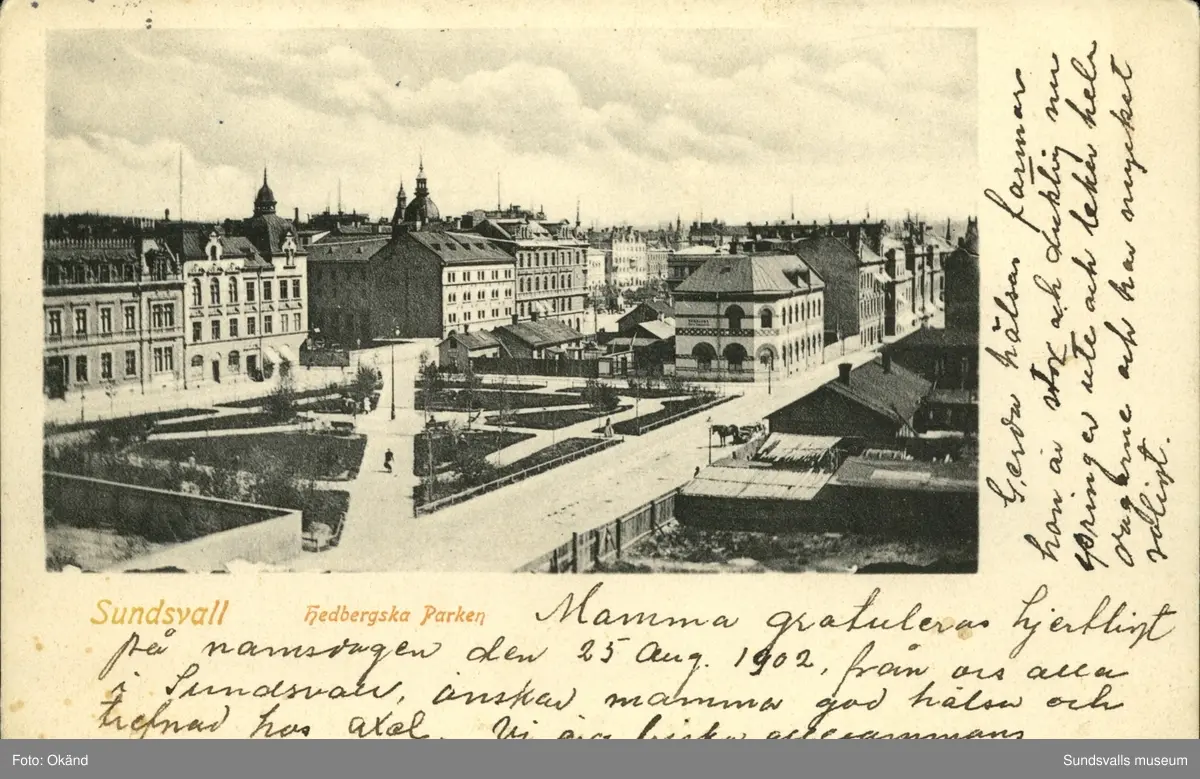 Sundsvall
Hedbergska Parken
Mamma gratuleras hjertligt
på namsdagen den 25 Aug. 1902, från oss alla
i Sundsvall, önskar mamma god hälsa och
trefnad hos Axel. Vi äro friska allesammans
Gerda hälsar farmor
hon är stor och duktig nu
springer ute och leker hela
dagarne och har mycket
roligt.
Foto: Okänd
Sundsvalls museum